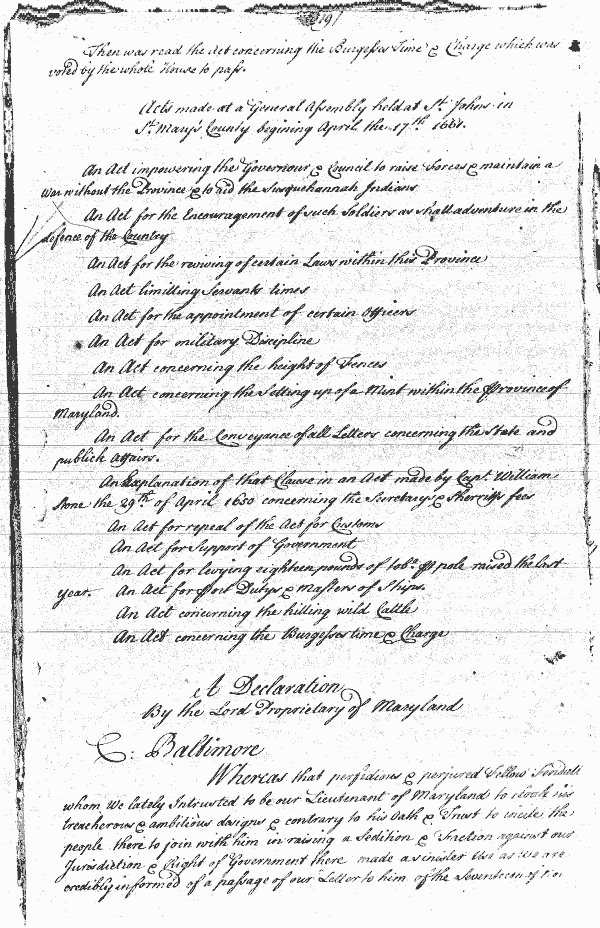 191
Then was read the Act concerning the Burgesses Time & Charge which was
voted by the whole House to pass.
Acts made at a General Assembly held at St. Johns in
St. Mary's County begining April the 17th 1661.
An Act impowering the Governour & Council to raise Forces & maintain a
War without the Province & to aid the Susquehannah Indians
An Act for the Encouragement of such Soldiers as shall adventure in the
defence of the Country
An Act for the reviving of certain Laws within this Province
An Act limitting Servants times
An Act for the appointment of certain Officers
An Act for military Discipline
An Act concerning the height of Fences
An Act concerning the Setting up of a Mint within the Province of
Maryland.
An Act for the Conveyance of all Letters concerning the State and
publick Affairs.
An Explanation of that Clause in an Act made by Capt. William
Stone the 29th of April 1650 concerning the Secretary's & Sherriffs fees
An Act for repeal of the Act for Customs
An Act for Support of Government
An Act for levying eighteen pounds of tob. pole raised the last
year. An Act for Port Dutys & Masters of Ships.
An Act concerning the killing wild Cattle
An Act concerning the Burgesses time & Charge
A Declaration
By the Lord Proprietary of Maryland
C: Baltimore
Whereas that perfidious & perjured Fellow Fendall
whom we lately Intrusted to be our Lieutenant of Maryland to cloak his
treacherous & ambitious designs & contrary to his Oath & Trust to incite the
people there to join with him in raising a Sedition & Faction against our
Jurisdiction & Right of Government there made a sinister Use as we are
credibly informed of a passage of our Letter to him of the